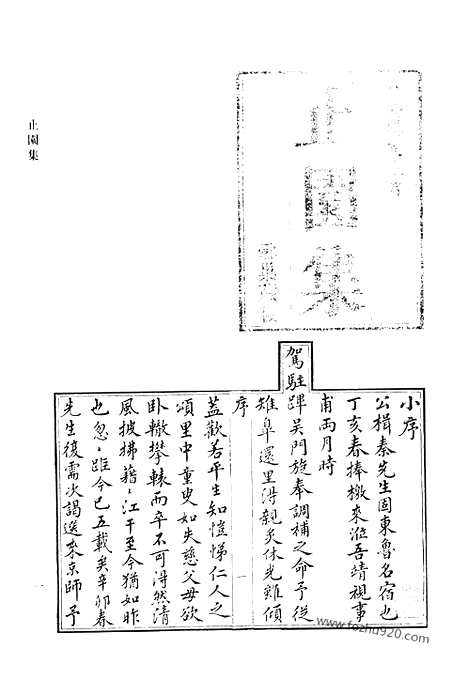 止園集
止園集
小序
公楫秦先生固東魯名宿也
丁亥春捧檄來涖吾靖視事
甫兩月時
駕駐蹕吳門旋奉調補之命予從
雉皐還里得親炙休光雖傾
序 一
蓋歡若平生知愷悌仁人之
頌里中童叟如失慈父母欲
臥轍攀轅而卒不可得然清
風披拂藉〻江干至今猶如昨
也忽〻距今已五載矣辛卯春
先生復需次謁選來京師予
www.fozhu920.com